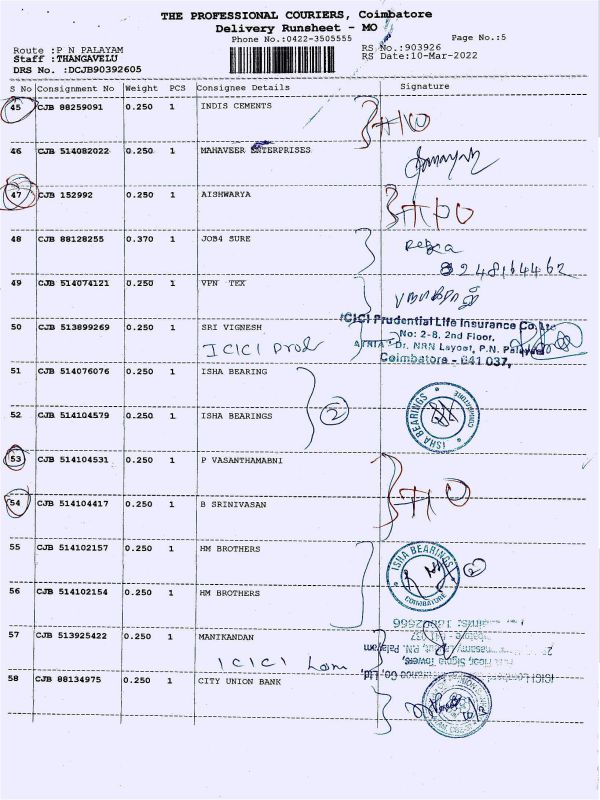 THE PROFESSIONAL COURIERS, Coimbatore
Delivery Runsheet - MO
Phone No.:0422-3505555
Page No.:5
Route :P N PALAYAM
RS No.:903926
Staff :THANGAVELU
RS Date:10-Mar-2022
DRS No. :DCJB90392605
S No Consignment No Weight PCS Consignee Details Signature
45 CJB 88259091 0.250 1 INDIS CEMENTS
46 CJB 514082022 0.250 1 MAHAVEER ENTERPRISES
47 CJB 152992 0.250 1 AISHWARYA
48 CJB 88128255 0.370 1 JOB4 SURE
8248164462
49 CJB 514074121 0.250 1 VPN TEX
50 CJB 513899269 0.250 1 SRI VIGNESH
ICICI Prod
ICICI Prudential Life Insurance Co. Ltd
No: 2-8, 2nd Floor,
Dr. NRN Layout, P.N. Palayam
Coimbatore - 641 037,
51 CJB 514076076 0.250 1 ISHA BEARING
2
52 CJB 514104579 0.250 1 ISHA BEARINGS
ISHA BEARINGS
COIMBATORE
53 CJB 514104531 0.250 1 P VASANTHAMABNI
54 CJB 514104417 0.250 1 B SRINIVASAN
55 CJB 514102157 0.250 1 HM BROTHERS
ISHA BEARINGS
COIMBATORE
2
56 CJB 514102154 0.250 1 HM BROTHERS
57 CJB 513925422 0.250 1 MANIKANDAN
ICICI Lom
58 CJB 88134975 0.250 1 CITY UNION BANK